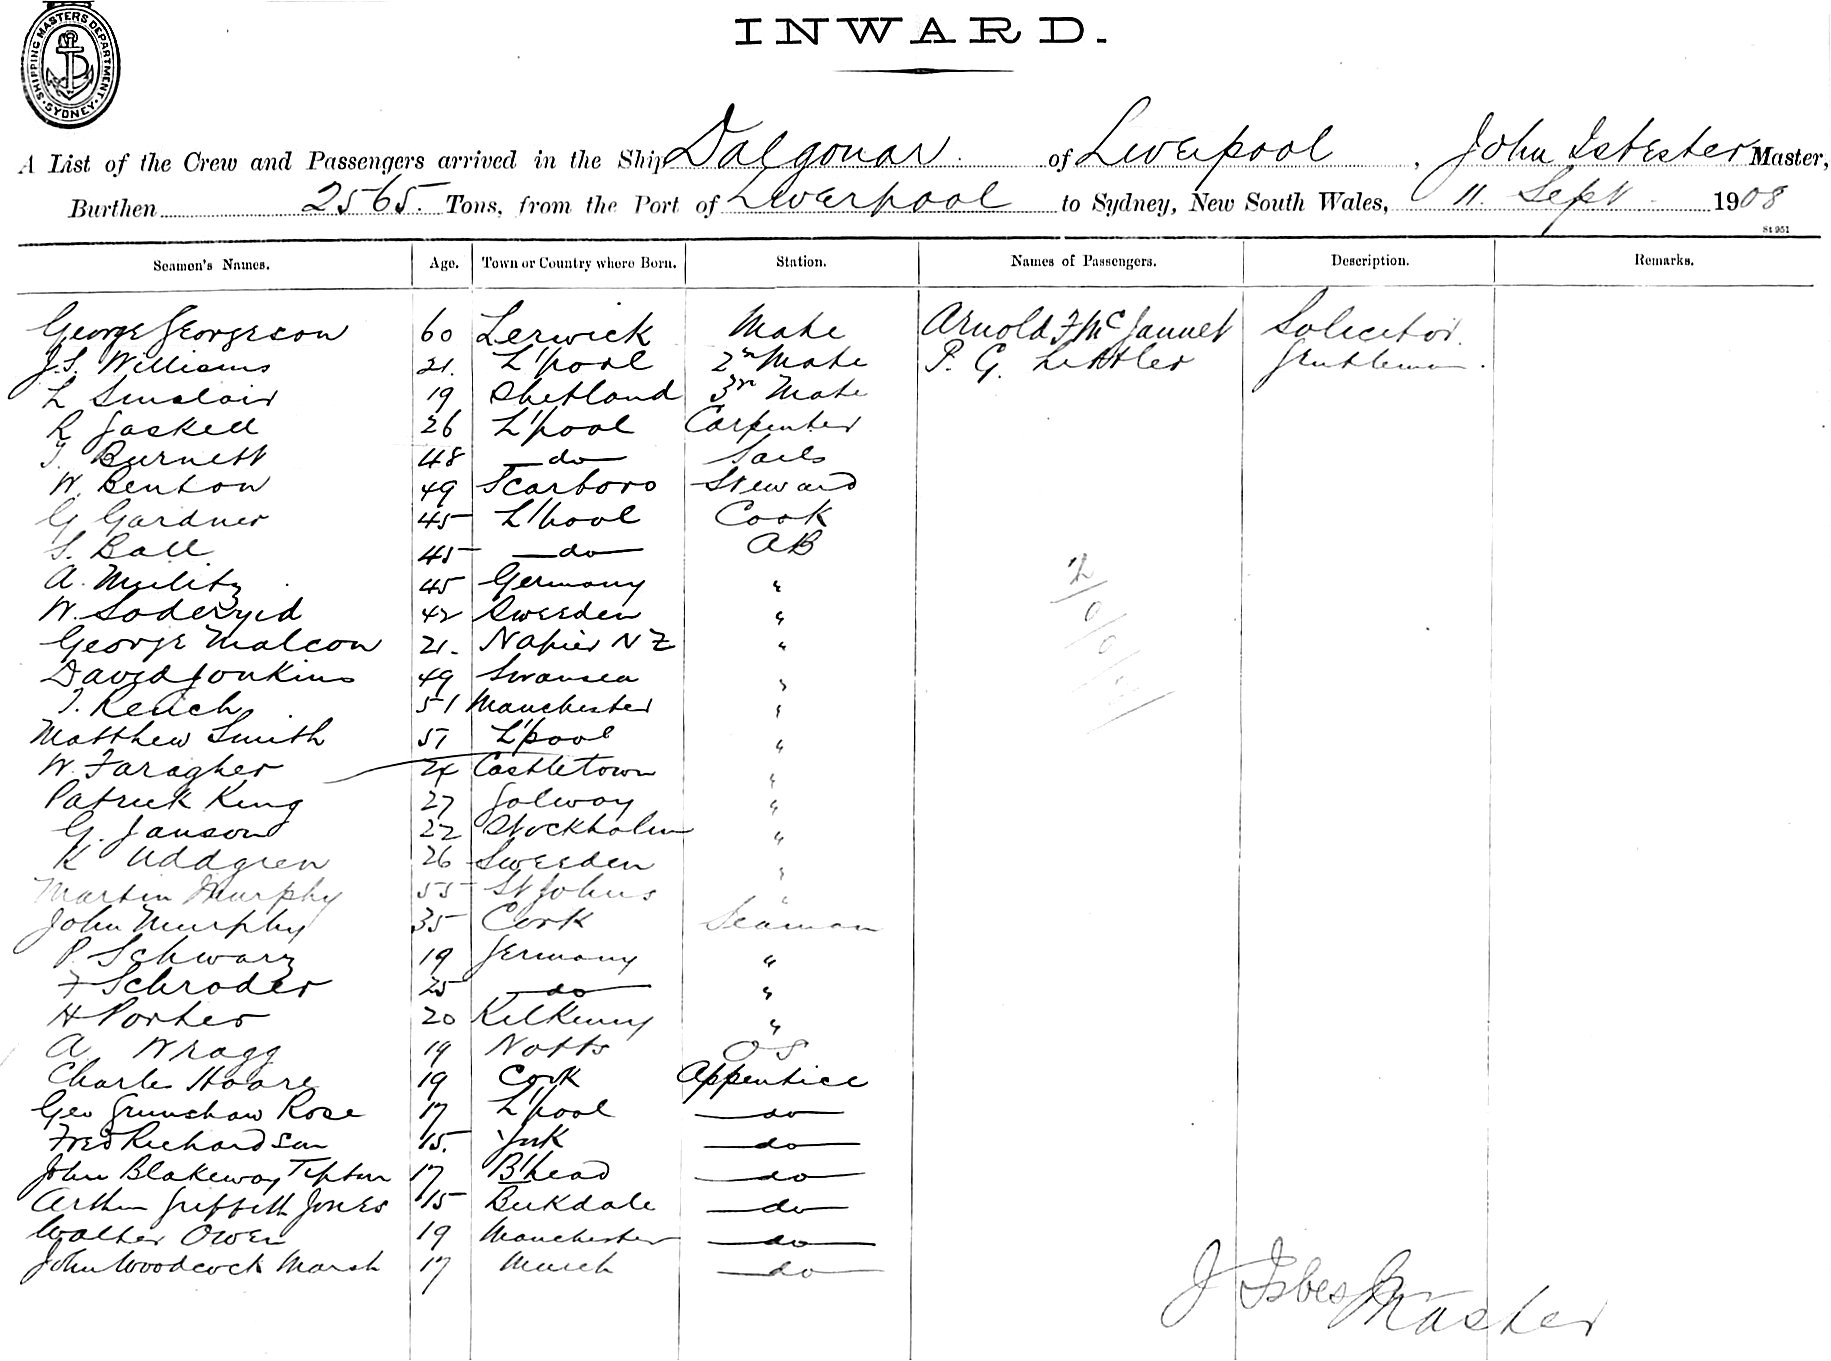 SHIPPING MASTERS DEPARTMENT. SYDNEY
INWARD.
A List of the Crew and Passengers arrived in the Ship Dalgonar of Liverpool, John Isbester Master,
Burthen 2565. Tons, from the Port of Liverpool to Sydney, New South Wales, 11. Sept 1908
St 951
Seamen's Names. Age. Town or Country where Born. Station. Names of Passengers. Description. Remarks.
George Georgeson 60 Lerwick Mate Arnold F Mc Jannet Solicitor.
J.S. Williams 21. L'pool 2n Mate P. G. Littler Gentleman.
L Sinclair 19 Shetland 3r Mate
R Gaskell 26 L'pool Carpenter
Burnett 48 do Sails
W. Benton 49 Scarboro Steward
G Gardner 45 L'pool Cook
S. Ball 45 do AB
A. 45 Germany "
W. 42 Sweden "
George Malcon 21. Napier NZ "
David Jonkins 49 Swansea "
51 Manchester "
Matthew Smith 51 L'pool "
W. Faragher 24 Castletown "
Patrick King 27 Galway "
G. Janson 22 Stockholm "
K Uddgren 26 Sweeden "
Martin Murphy 55 St Johns "
John Murphy 35 Cork Seaman
P. Schwarz 19 Germany "
F Schroder 25 do "
H Porter 20 Kilkenny "
A Wragg 19 Notts OS
Charles Hoare 19 Cork Apprentice
Geo Grimshaw Rose 17 L'pool do
Fred Richardson 15. York do
John Blakeway Tipton 17 B'head do
Arthur Griffith Jones 15 Birkdale do
Walter Owen 19 Manchester do
John Woodcock Marsh 17 March do
J Isbester
Master